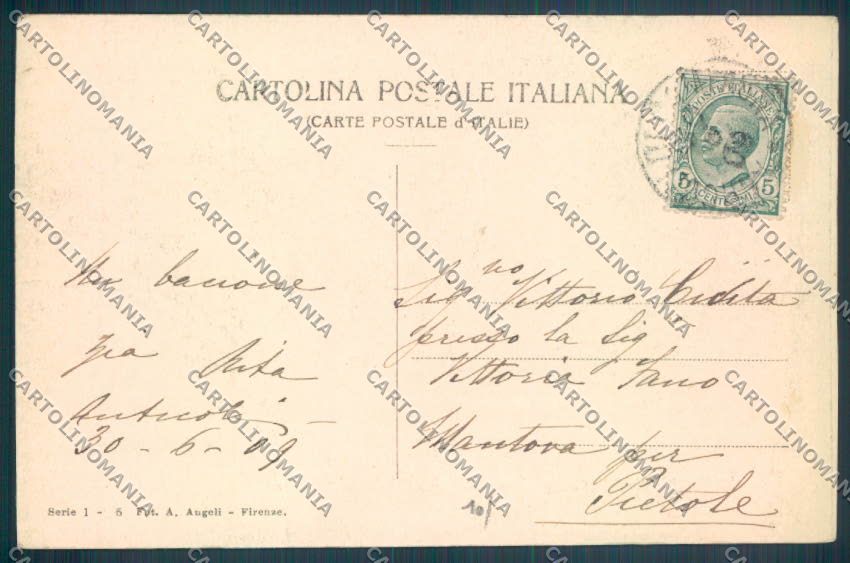 CARTOLINA POSTALE ITALIANA
(CARTE POSTALE d'ITALIE)
POSTE ITALIANE
5 CENTESIMI 5
Un bacione
zia Rita
Anticoli
30 - 6 - 09
Sig no Vittorio
presso la Sig
Vittoria Fano
Mantova per
Pietole
Serie 1 - 5 Fot. A. Angeli - Firenze.
CARTOLINOMANIA